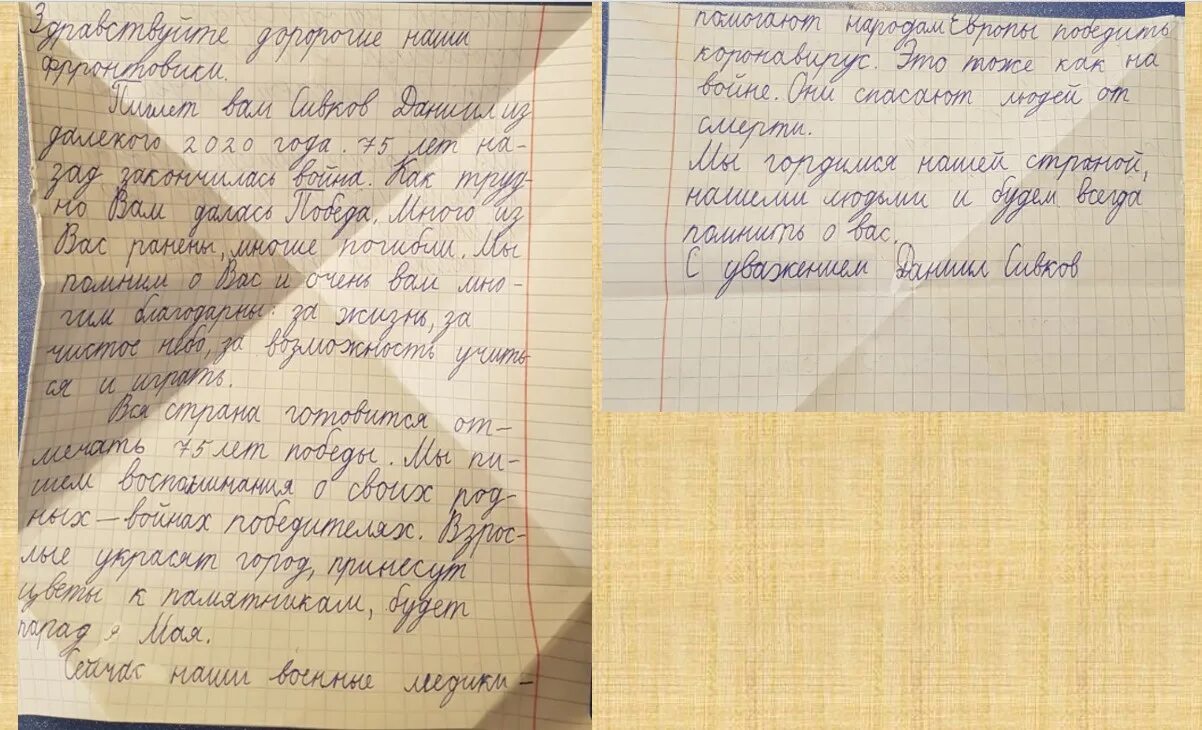 Здравствуйте доророгие наши
фрронтовики.
Пишет вам Сивков Даниил из
далекого 2020 года. 75 лет на-
зад закончилась война. Как труд-
но Вам далась Победа. Много из
Вас ранены, многие погибли. Мы
помним о Вас и очень вам мно-
гим благодарны: за жизнь, за
чистое небо, за возможность учить
ся и играть.
Вся страна готовится от-
мечать 75 лет победы. Мы пи-
шем воспоминания о своих род-
ных — войнах победителях. Взрос-
лые украсят город, принесут
цветы к памятникам, будет
парад 9 Мая.
Сейчас наши военные медики —
помогают народам Европы победить
коронавирус. Это тоже как на
войне. Они спасают людей от
смерти.
Мы гордимся нашей страной,
нашеми людьми и будем всегда
помнить о вас.
С уважением Даниил Сивков